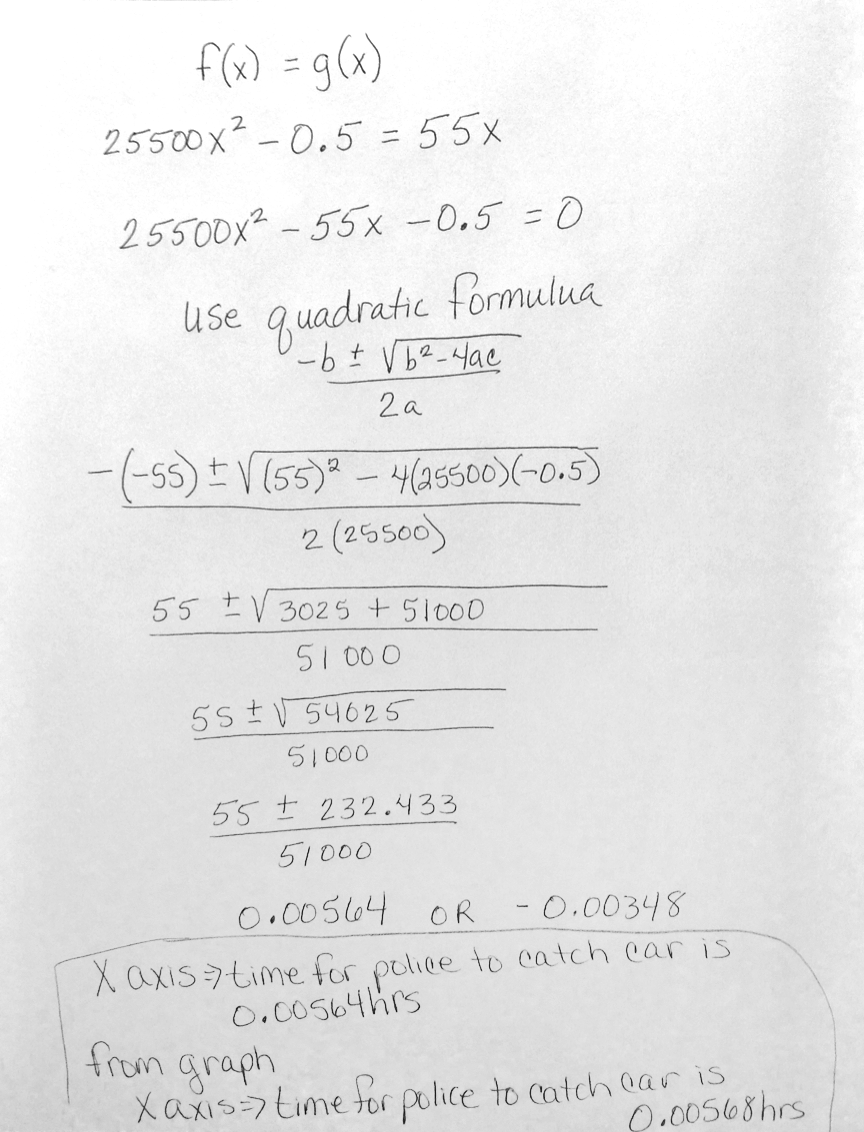 f(x) = g(x)
25500x² - 0.5 = 55x
25500x² - 55x - 0.5 = 0
use quadratic formulua
-b ± √b²-4ac
2a
-(-55) ± √(55)² - 4(25500)(-0.5)
2(25500)
55 ± √3025 + 51000
51000
55 ± √54025
51000
55 ± 232.433
51000
0.00564 OR -0.00348
X axis ⇒ time for police to catch car is
0.00564hrs
from graph
X axis ⇒ time for police to catch car is
0.00568hrs